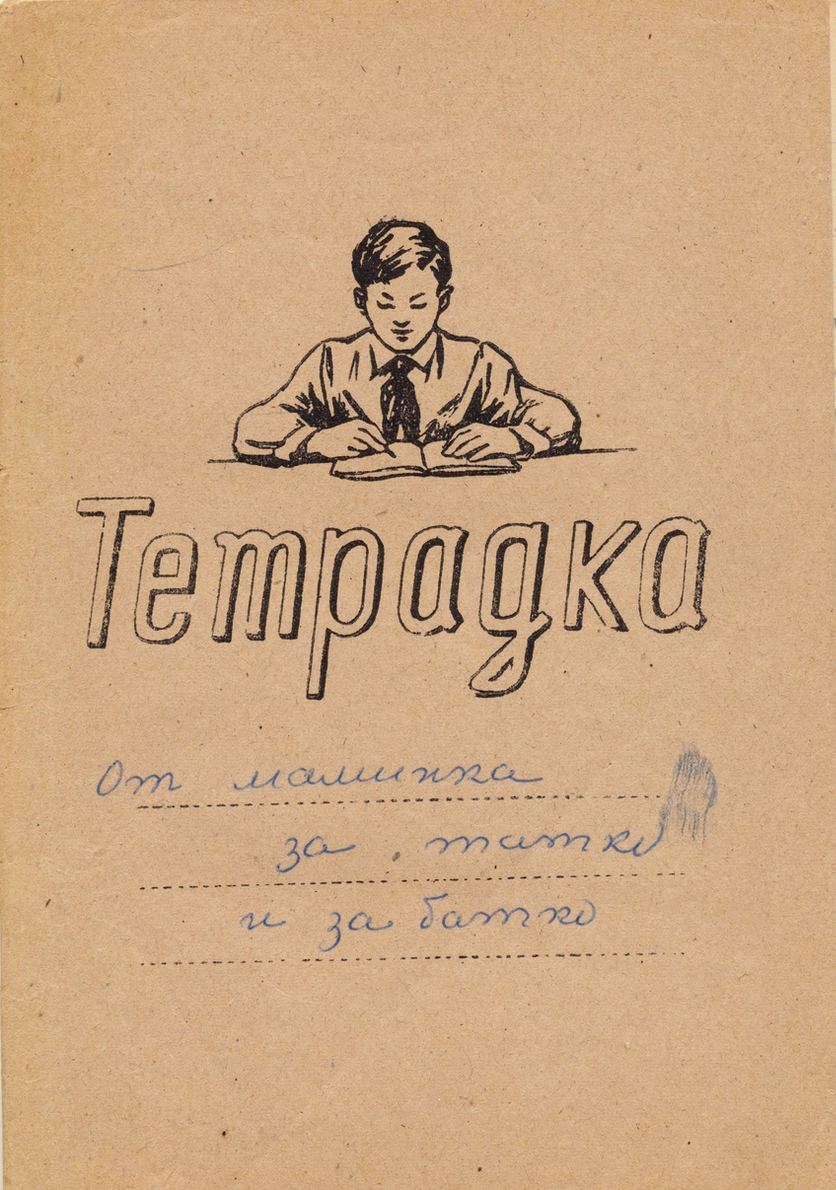 Тетрадка
От маминка
за татко
и за батко